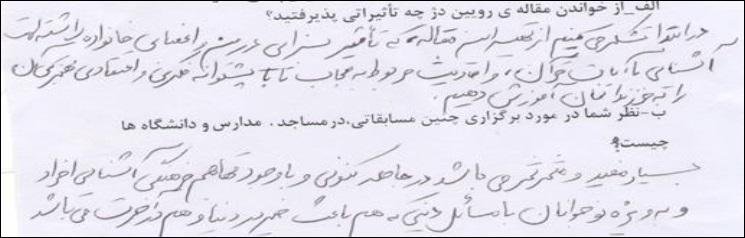 الف_از خواندن مقاله ی رویین دژ چه تأثیراتی پذیرفتید؟
در ابتدا تشکر می کنم از تهیه این مقاله، که تأثیر بسزایی در من و اعضای خانواده داشته است
آشنایی با آیات قرآن، و احادیث مربوط به حجاب تا با پشتوانه فکری و اعتقادی
را به فرزندانمان آموزش دهیم.
ب-نظر شما در مورد برگزاری چنین مسابقاتی،در مساجد . مدارس و دانشگاه ها
چیست؟
بسیار مفید و مثمر ثمر می باشد در جامعه کنونی و با وجود تهاجم فرهنگی آشنایی افراد
و به ویژه نوجوانان با مسائل دینی هم باعث خیر در دنیا و هم در آخرت می باشد